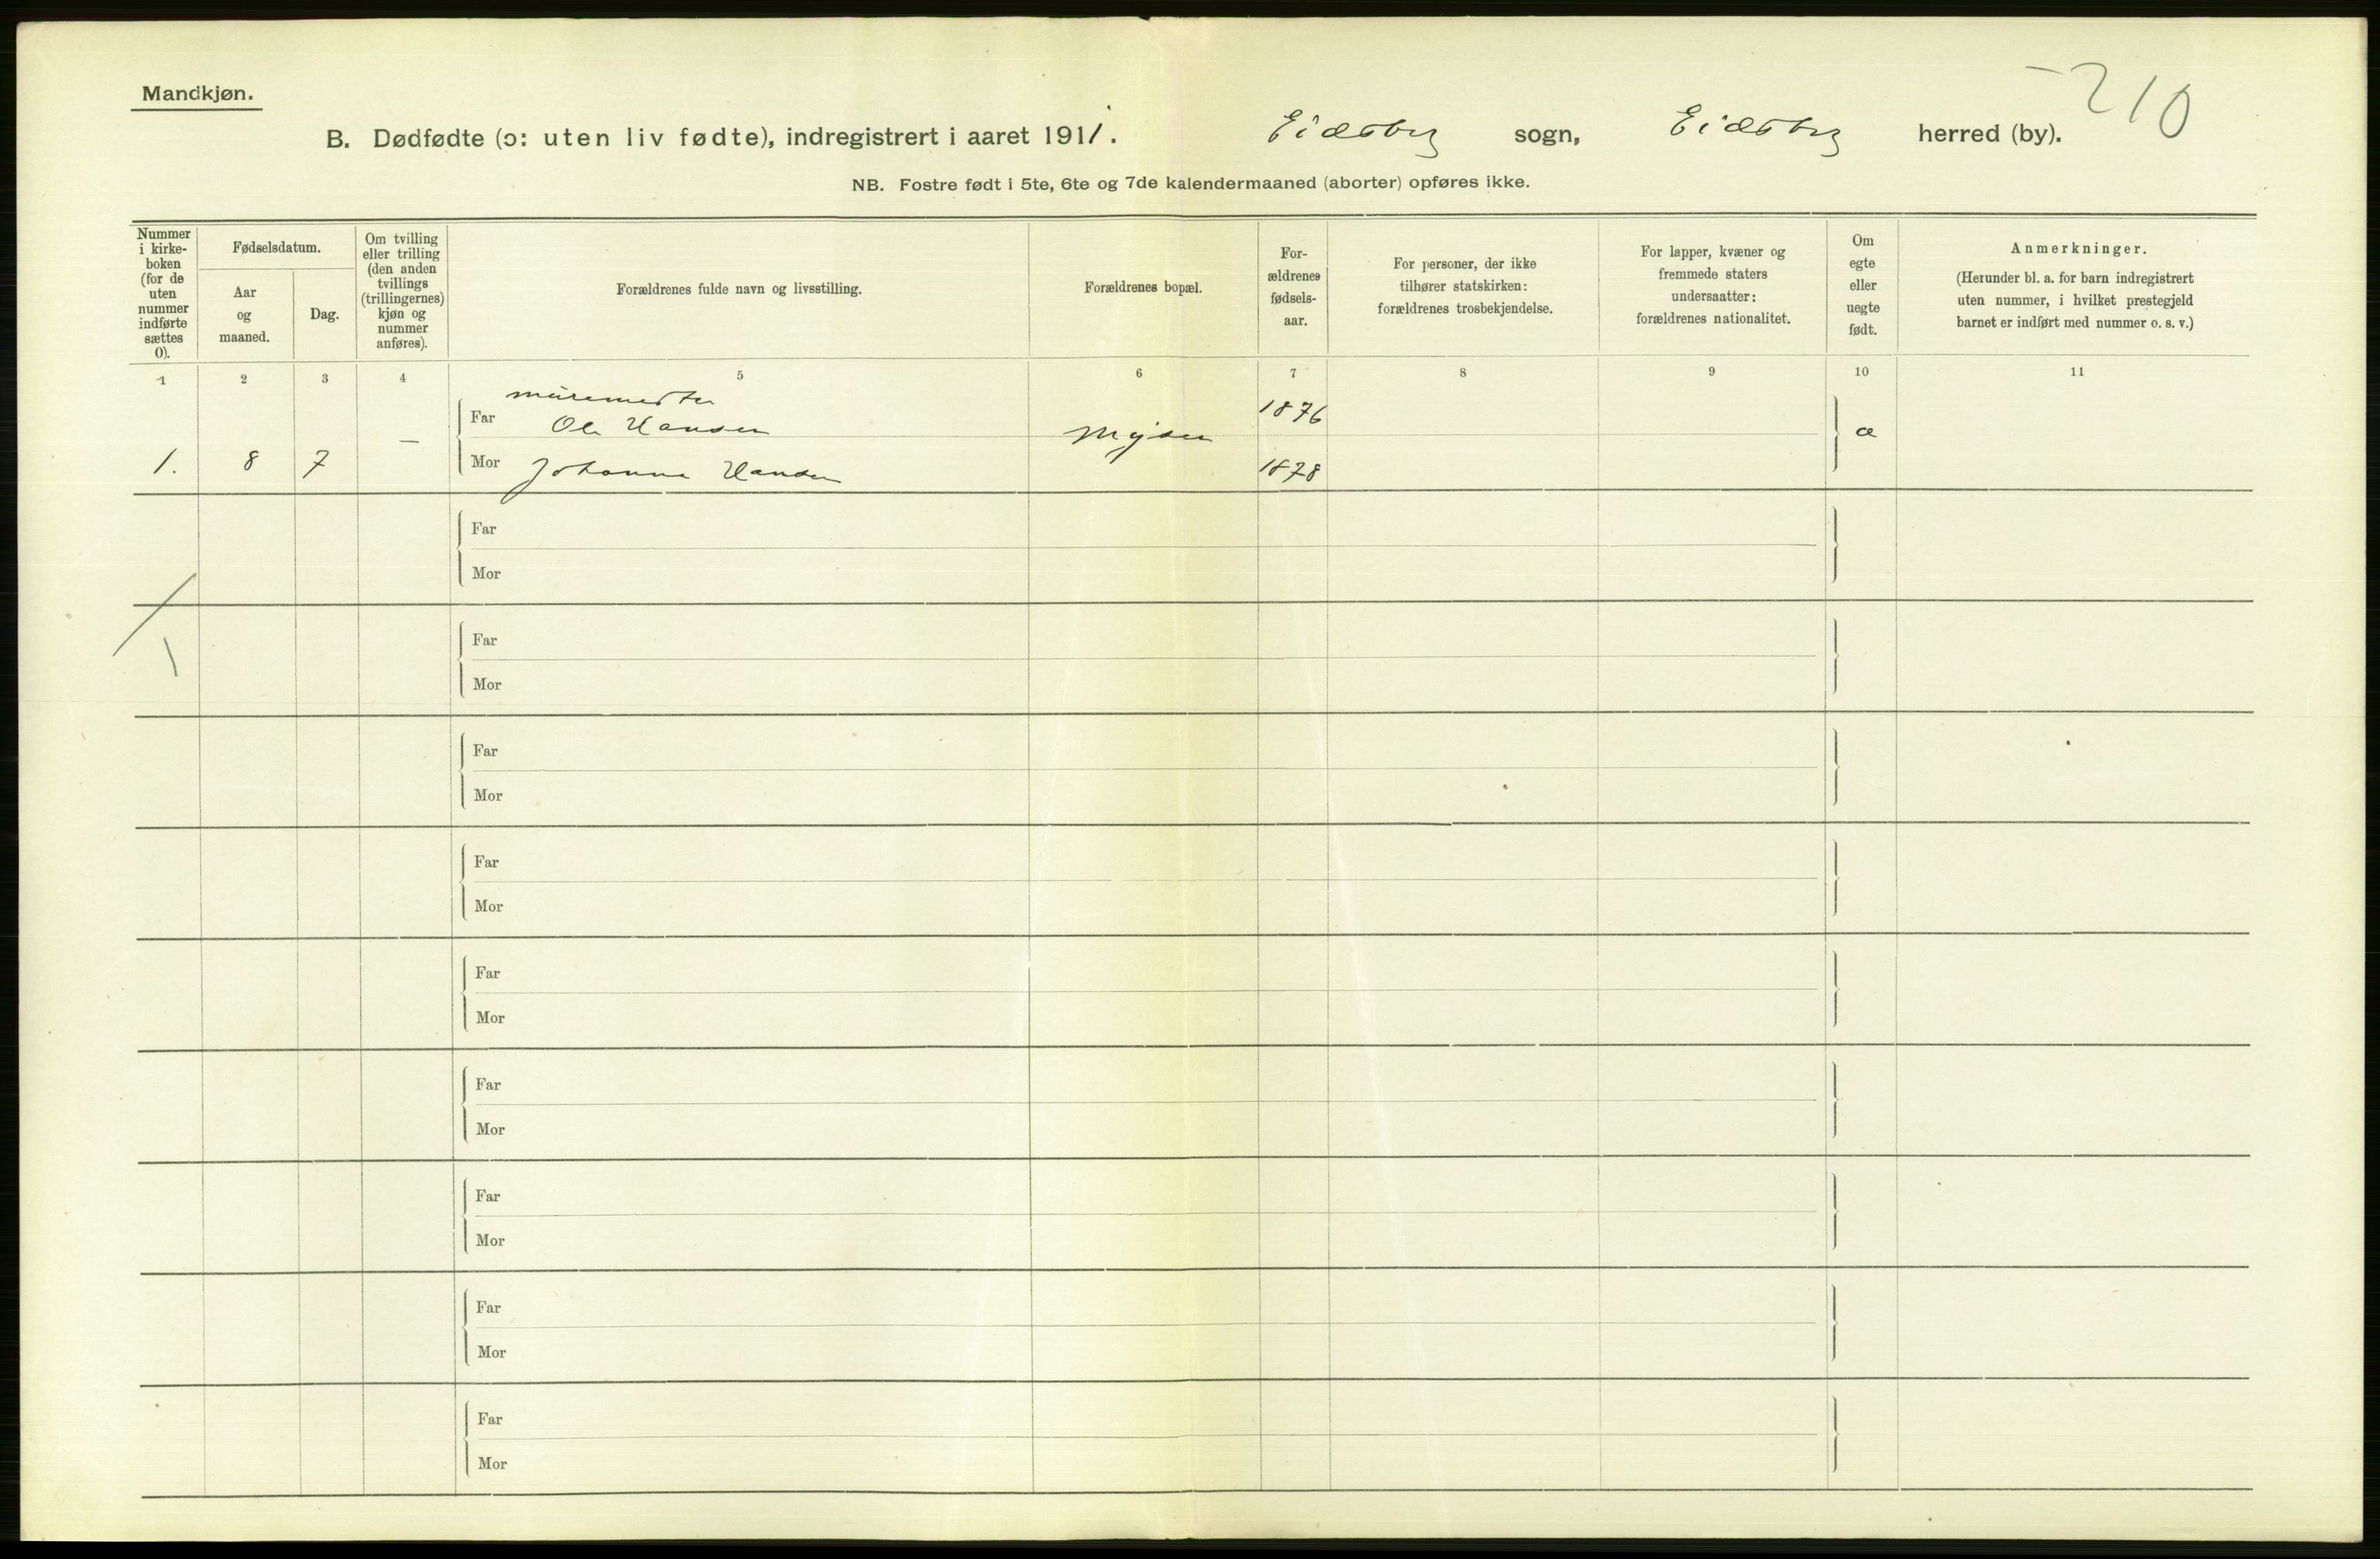 Mandkjøn.
210
B. Dødfødte (ɔ: uten liv fødte), indregistrert i aaret 1911. Eidsberg sogn, Eidsberg herred (by).
NB. Fostre født i 5te, 6te og 7de kalendermaaned (aborter) opføres ikke.
Nummer
i kirke-
boken
(for de
uten
nummer
indførte
sættes
0).
Fødselsdatum.
Aar
og
maaned.
Dag.
Om tvilling
eller trilling
(den anden
tvillings
(trillingernes)
kjøn og
nummer
anføres).
Forældrenes fulde navn og livsstilling.
Forældrenes bopæl.
For-
ældrenes
fødsels-
aar.
For personer, der ikke
tilhører statskirken:
forældrenes trosbekjendelse.
For lapper, kvæner og
fremmede staters
undersaatter:
forældrenes nationalitet.
Om
egte
eller
uegte
født.
Anmerkninger.
(Herunder bl. a. for barn indregistrert
uten nummer, i hvilket prestegjeld
barnet er indført med nummer o. s. v.)
1 2 3 4 5 6 7 8 9 10 11
murermester
Far Ole Hansen 1876
1. 8 7 — Mysen æ
Mor Johanne Hansen 1878
Far
Mor
Far
1
Mor
Far
Mor
Far
Mor
Far
Mor
Far
Mor
Far
Mor
Far
Mor
Far
Mor